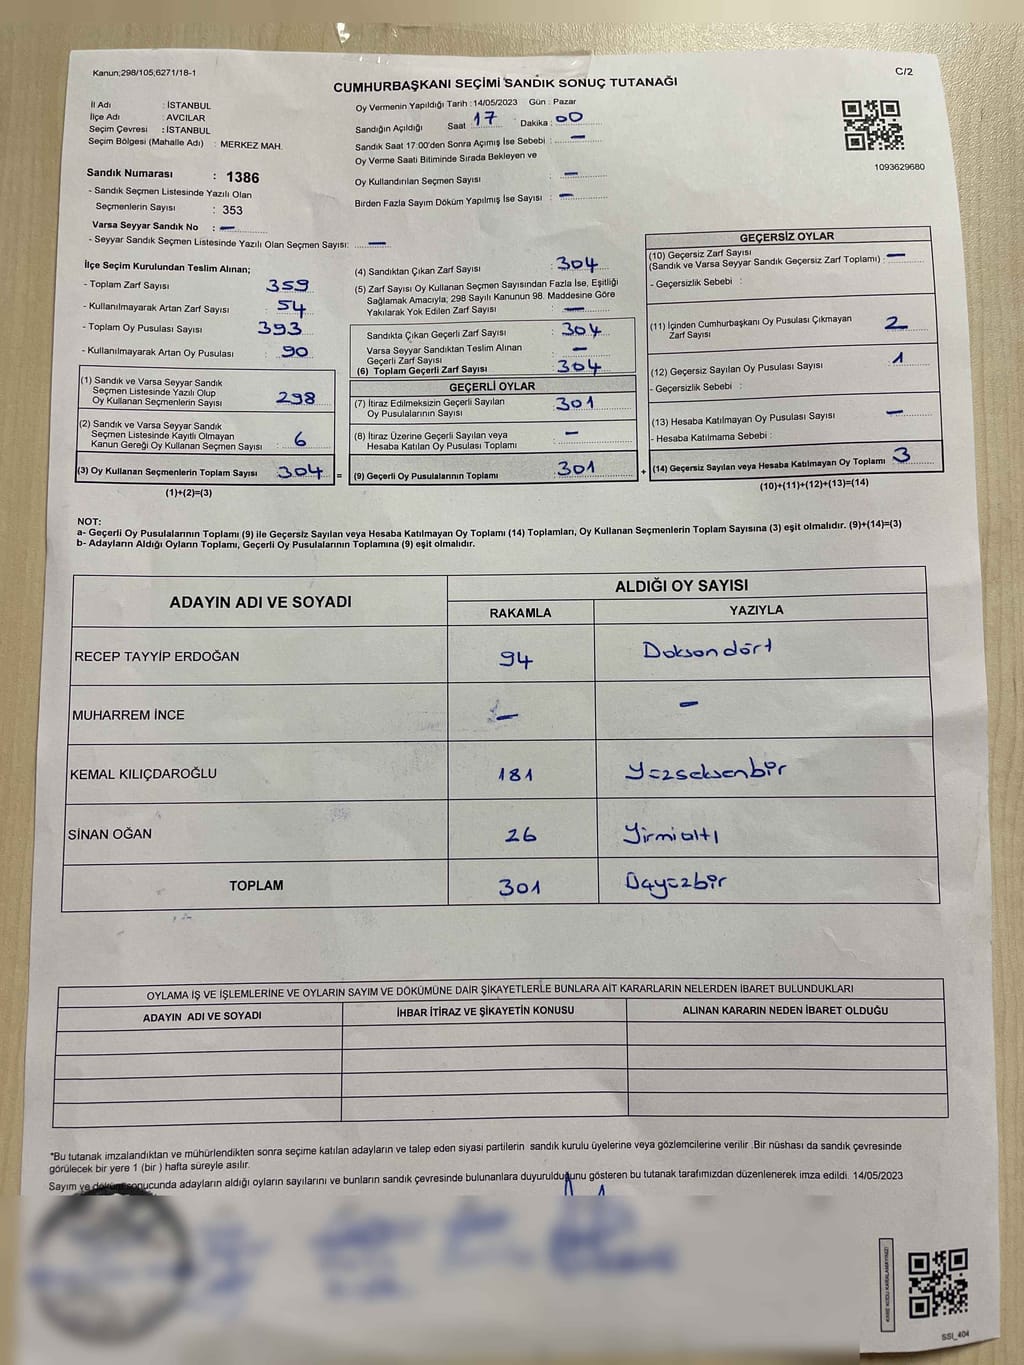 Kanun;298/105;6271/18-1
C/2
CUMHURBAŞKANI SEÇİMİ SANDIK SONUÇ TUTANAĞI
İl Adı : İSTANBUL
İlçe Adı : AVCILAR
Seçim Çevresi : İSTANBUL
Seçim Bölgesi (Mahalle Adı) : MERKEZ MAH.
Oy Vermenin Yapıldığı Tarih : 14/05/2023 Gün : Pazar
Sandığın Açıldığı Saat 17 Dakika : 00
Sandık Saat 17:00'den Sonra Açımış İse Sebebi : —
Oy Verme Saati Bitiminde Sırada Bekleyen ve
Oy Kullandırılan Seçmen Sayısı : —
Birden Fazla Sayım Döküm Yapılmış İse Sayısı : —
1093629680
Sandık Numarası : 1386
- Sandık Seçmen Listesinde Yazılı Olan
Seçmenlerin Sayısı : 353
Varsa Seyyar Sandık No : —
- Seyyar Sandık Seçmen Listesinde Yazılı Olan Seçmen Sayısı: —
İlçe Seçim Kurulundan Teslim Alınan;
- Toplam Zarf Sayısı : 359
- Kullanılmayarak Artan Zarf Sayısı : 54
- Toplam Oy Pusulası Sayısı : 393
- Kullanılmayarak Artan Oy Pusulası : 90
(1) Sandık ve Varsa Seyyar Sandık
Seçmen Listesinde Yazılı Olup
Oy Kullanan Seçmenlerin Sayısı : 298
(2) Sandık ve Varsa Seyyar Sandık
Seçmen Listesinde Kayıtlı Olmayan
Kanun Gereği Oy Kullanan Seçmen Sayısı : 6
(3) Oy Kullanan Seçmenlerin Toplam Sayısı 304 =
(1)+(2)=(3)
(4) Sandıktan Çıkan Zarf Sayısı : 304
(5) Zarf Sayısı Oy Kullanan Seçmen Sayısından Fazla İse, Eşitliği
Sağlamak Amacıyla; 298 Sayılı Kanunun 98. Maddesine Göre
Yakılarak Yok Edilen Zarf Sayısı : —
Sandıkta Çıkan Geçerli Zarf Sayısı : 304
Varsa Seyyar Sandıktan Teslim Alınan
Geçerli Zarf Sayısı : —
(6) Toplam Geçerli Zarf Sayısı : 304
GEÇERLİ OYLAR
(7) İtiraz Edilmeksizin Geçerli Sayılan
Oy Pusulalarının Sayısı : 301
(8) İtiraz Üzerine Geçerli Sayılan veya
Hesaba Katılan Oy Pusulası Toplamı : —
(9) Geçerli Oy Pusulalarının Toplamı 301 +
GEÇERSİZ OYLAR
(10) Geçersiz Zarf Sayısı
(Sandık ve Varsa Seyyar Sandık Geçersiz Zarf Toplamı) : —
- Geçersizlik Sebebi :
(11) İçinden Cumhurbaşkanı Oy Pusulası Çıkmayan
Zarf Sayısı : 2
(12) Geçersiz Sayılan Oy Pusulası Sayısı : 1
- Geçersizlik Sebebi :
(13) Hesaba Katılmayan Oy Pusulası Sayısı : —
- Hesaba Katılmama Sebebi :
(14) Geçersiz Sayılan veya Hesaba Katılmayan Oy Toplamı 3
(10)+(11)+(12)+(13)=(14)
NOT:
a- Geçerli Oy Pusulalarının Toplamı (9) ile Geçersiz Sayılan veya Hesaba Katılmayan Oy Toplamı (14) Toplamları, Oy Kullanan Seçmenlerin Toplam Sayısına (3) eşit olmalıdır. (9)+(14)=(3)
b- Adayların Aldığı Oyların Toplamı, Geçerli Oy Pusulalarının Toplamına (9) eşit olmalıdır.
ADAYIN ADI VE SOYADI
ALDIĞI OY SAYISI
RAKAMLA YAZIYLA
RECEP TAYYİP ERDOĞAN 94 Doksandört
MUHARREM İNCE — —
KEMAL KILIÇDAROĞLU 181 Yüzseksenbir
SİNAN OĞAN 26 Yirmialtı
TOPLAM 301 Üçyüzbir
OYLAMA İŞ VE İŞLEMLERİNE VE OYLARIN SAYIM VE DÖKÜMÜNE DAİR ŞİKAYETLERLE BUNLARA AİT KARARLARIN NELERDEN İBARET BULUNDUKLARI
ADAYIN ADI VE SOYADI İHBAR İTİRAZ VE ŞİKAYETİN KONUSU ALINAN KARARIN NEDEN İBARET OLDUĞU
*Bu tutanak imzalandıktan ve mühürlendikten sonra seçime katılan adayların ve talep eden siyasi partilerin sandık kurulu üyelerine veya gözlemcilerine verilir .Bir nüshası da sandık çevresinde
görülecek bir yere 1 (bir ) hafta süreyle asılır.
Sayım ve döküm sonucunda adayların aldığı oyların sayılarını ve bunların sandık çevresinde bulunanlara duyurulduğunu gösteren bu tutanak tarafımızdan düzenlenerek imza edildi. 14/05/2023
KARE KODU KARALAMAYINIZ!
SSİ_404